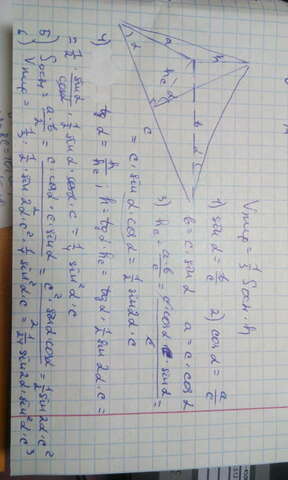 Vпир = 1/3 Sосн · h
1) sin α = b/c 2) cos α = a/c
b = c · sin α a = c · cos α
3) hc = a·b/c = c·cos α · c · sin α / c =
= c · sin α · cos α = 1/2 sin 2α · c
4) tg α = h/hc ; h = tg α · hc = tg α · 1/2 sin 2α · c =
= 1/2 · sin α/cos α · 1/2 sin α · cos α · c = 1/4 sin² α · c
5) Sосн = a·b/2 = c · cos α · c · sin α / 2 = c² · sin α cos α / 2 = 1/4 sin 2α · c²
6) Vпир = 1/3 · 1/2 · sin 2α · c² · 1/4 sin² α · c = 1/24 sin 2α · sin² α · c³
a
b
h
hc
α
c
α